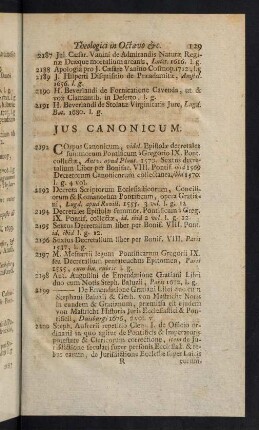 Theologici in Octavo &c. 129
2187 Jul. Cæsar. Vanini de Admirandis Naturæ Regi-
næ Deæque mortalium arcanis, Lutet. 1616. l. g.
2188 Apologia pro J. Cæsare Vanino Cosmop. 1712. l. g
2189 J. Hilperti Disquisitio de Præadamitis, Amstel.
1656. l. g.
2190 H. Beverlandi de Fornicatione Cavenda, ut &
vox Clamantis in Deserto. l. g.
2191 H. Beverlandi de Stolatæ Virginitatis Jure, Lugd.
Bat. 1680. l. g.
JUS CANONICUM.
2192 COrpus Canonicum, videl. Epistolæ decretales
summorum Pontificum à Gregorio IX. Pont.
collectæ, Antv. apud Plant. 1570. Sextus decre-
talium Liber per Bonifac. VIII. Pontif. ibid 1569
Decretorum Canonicorum collectanea, ibid 1570.
l. g. 4 vol.
2193 Decreta Scriptorum Ecclesiasticorum, Concili-
orum & Romanorum Pontificum, opera Gratia-
ni, Lugd. apud 1555. 3 vol. l. g.
2194 Decretales Epistolæ summor. Pontificum à Greg.
IX. Pontif. collectæ, ibid 2 vol. l. g. 12
2195 Sextus Decretalium liber per Bonif. VIII. Pont.
ibid l. g. 12
2196 Sextus Decretalium liber per Bonif. VIII. Paris
l. g. 12.
2197 M. Mesnarti legum Pontificum Gregorii IX.
seu Decretalium pentateuchon Epitomen, Paris
l. g.
2198 Ant. Augustini de Emendatione Gratiani Libri
duo cum Notis Steph. Baluzii, Paris 1672, l. g.
2199 —— De Emendatione Gratiani Libri duo cum
Stephani Baluzii & Gerh. von Mastricht Notis
in eundem & Gratianum, præmissa est ejusdem
von Mastricht Historia Juris Ecclesiastici & Pon-
tificii, Duisburgi 1676, 2 vol.
2200 Steph. Auferii repetitio Clem. I. de Officio or-
dinarii in quo agitur de potestate Ecclesiæ in
Laicos potestate & Clericorum correctione, item de Ju-
risdictione seculari super personis Ecclesiast. & re-
bus earum, de Jurisdictione Ecclesiæ super laicis
R earum.